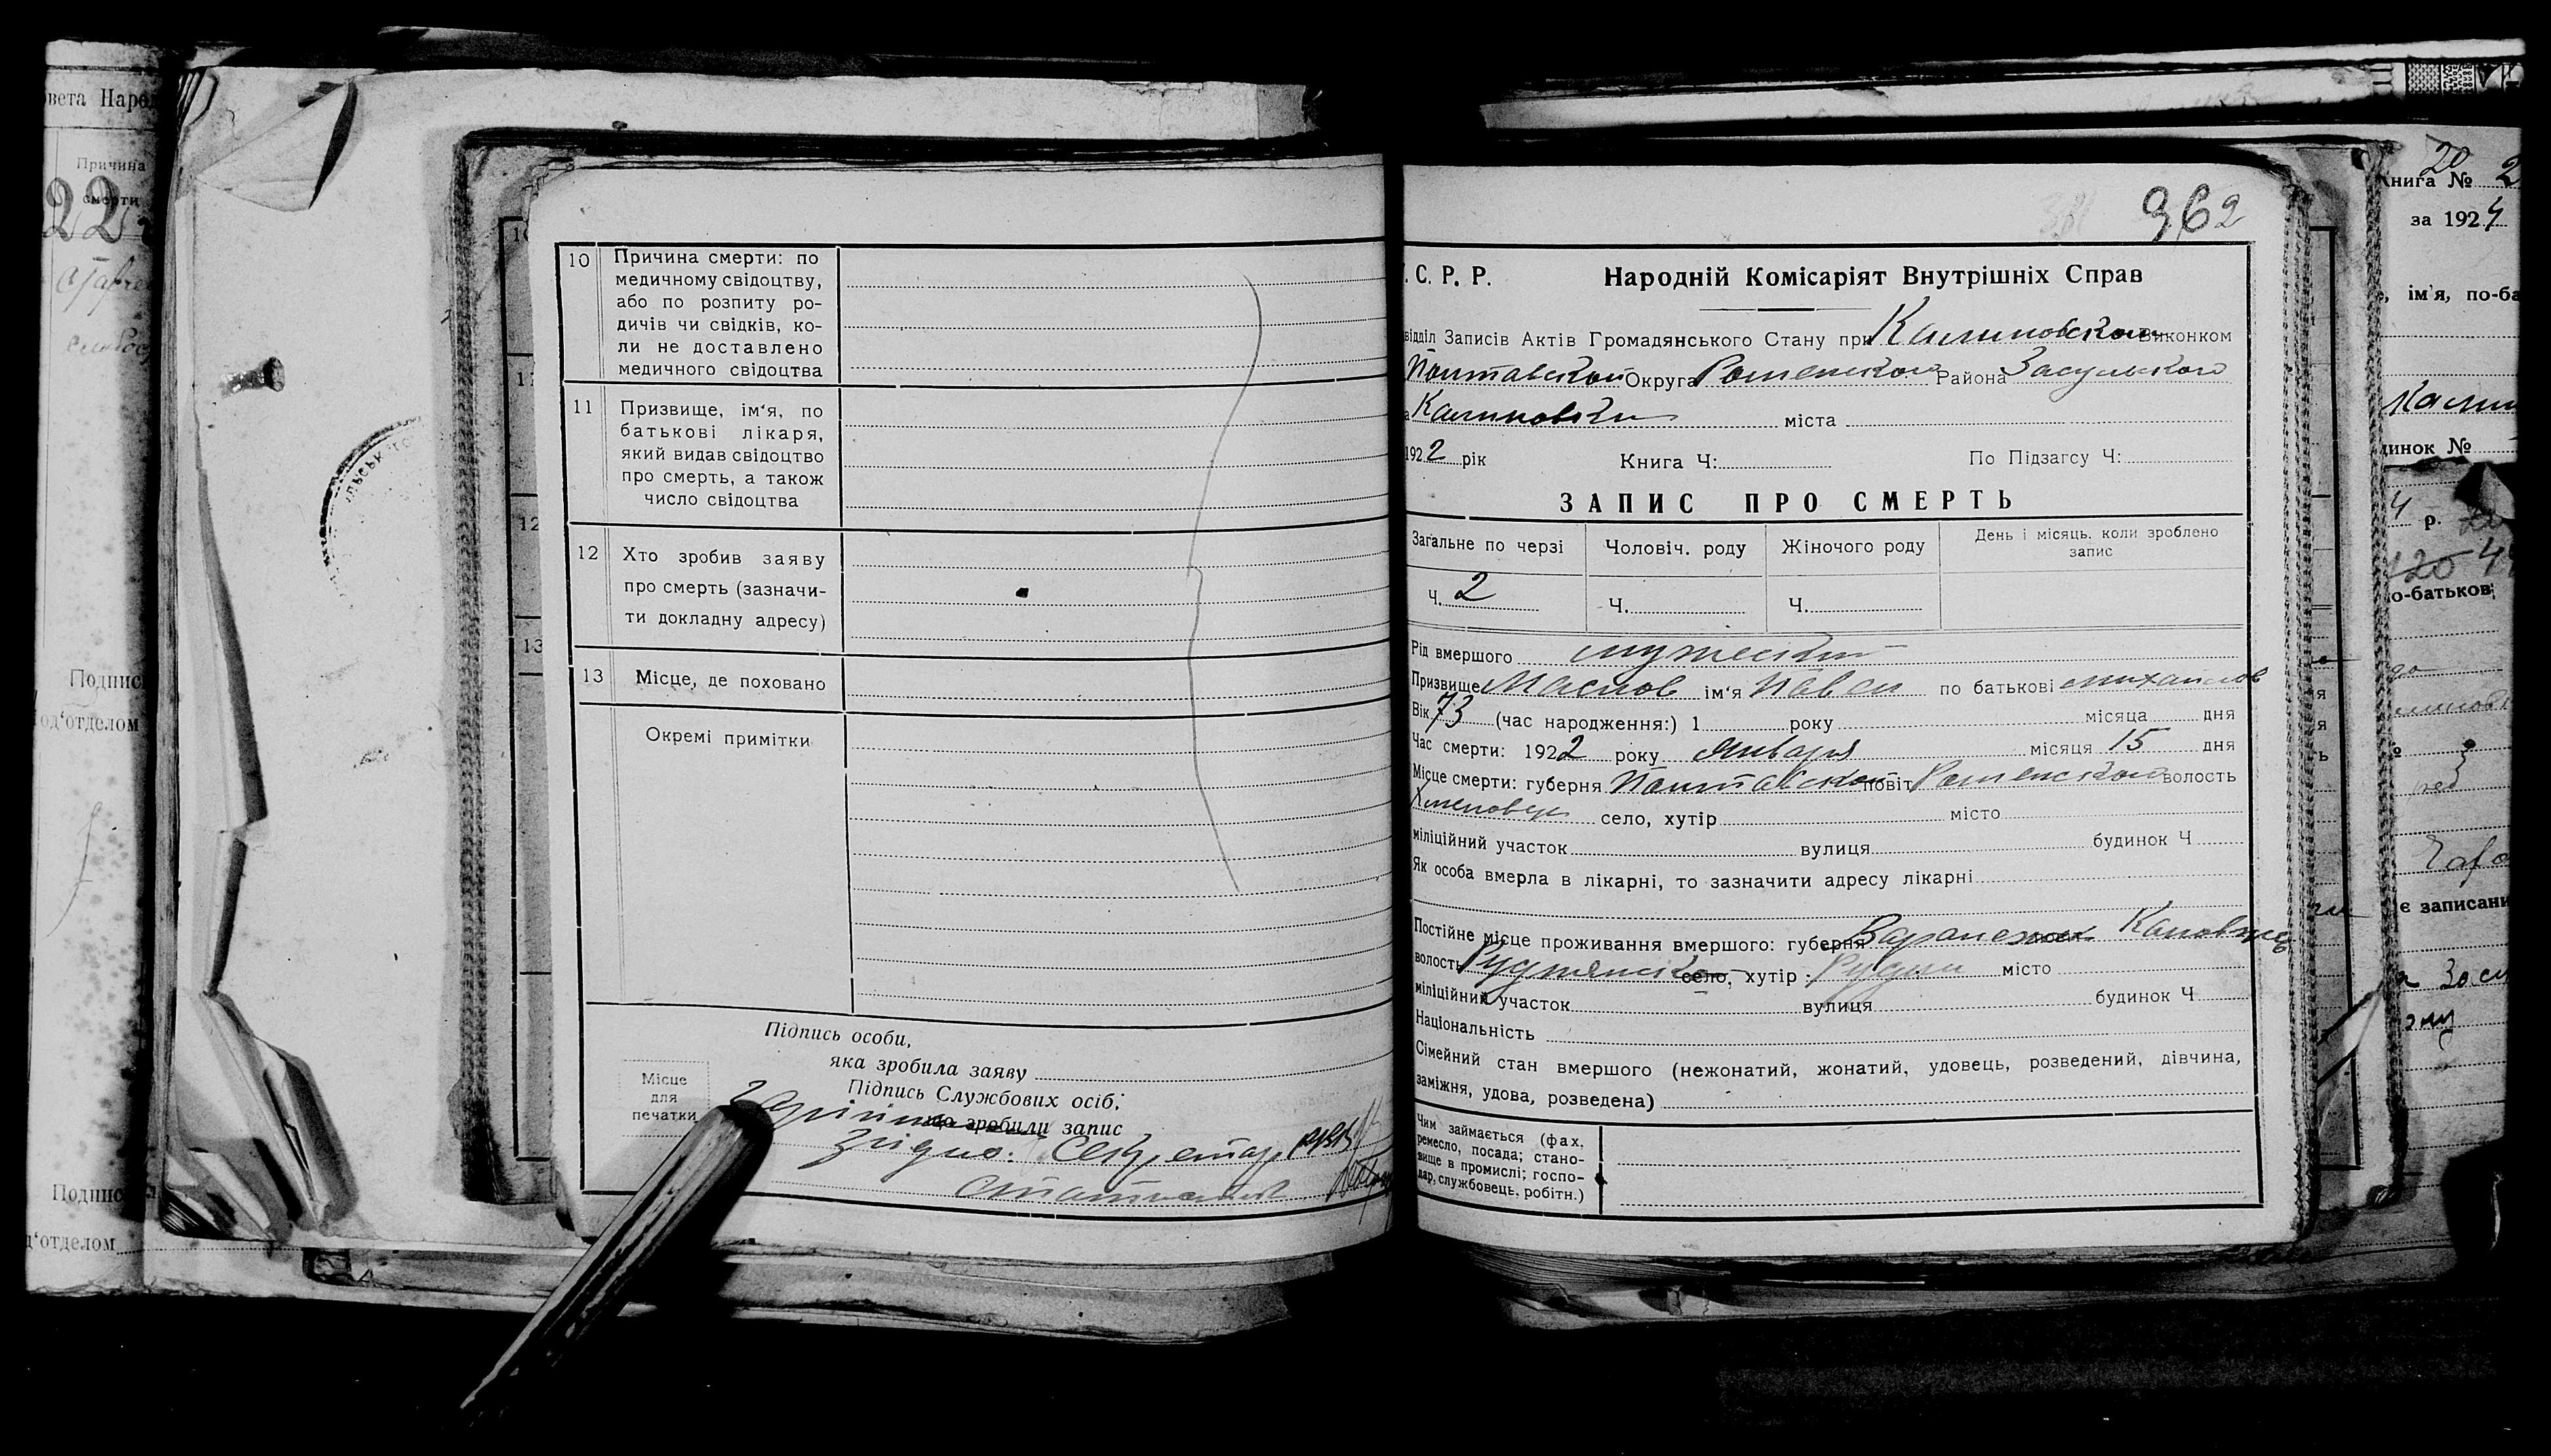 вета Наро
Причина
смерти
22
Подпис
од‘отделом
Подпис
д‘отделом
10 Причина смерти: по
медичному свідоцтву,
або по розпиту ро-
дичів чи свідків, ко-
ли не доставлено
медичного свідоцтва
11 Призвище, ім‘я, по
батькові лікаря,
який видав свідоцтво
про смерть, а також
число свідоцтва
12 Хто зробив заяву
про смерть (зазначи-
ти докладну адресу)
13 Місце, де поховано
Окремі примітки
Підпись особи,
яка зробила заяву
Підпись Службових осіб,
що зробили запис
Місце
для
печатки
Згідно: Секретар РВК
962
. С. Р. Р. Народній Комісаріят Внутрішніх Справ
відділ Записів Актів Громадянського Стану при Калиновском Виконком
Полтавской Округа Роменского Района Засульского
а Калиновки міста
1922 рік Книга Ч: По Підзагсу Ч:
ЗАПИС ПРО СМЕРТЬ
Загальне по черзі Чоловіч. роду Жіночого роду День і місяць. коли зроблено
запис
Ч. 2 Ч. Ч.
Рід вмершого мужеский
Призвище Маслов ім‘я Павел по батькові михайлов
Вік 73 (час народження:) 1 року місяца дня
Час смерти: 1922 року Января місяця 15 дня
Місце смерти: губерня Полтавской повіт Роменского волость
село, хутір місто
міліційний участок вулиця будинок Ч
Як особа вмерла в лікарні, то зазначити адресу лікарні
Постійне місце проживання вмершого: губерня
волость село, хутір Рудни місто
міліційний участок вулиця будинок Ч
Національність
Сімейний стан вмершого (нежонатий, жонатий, удовець, розведений, дівчина,
заміжня, удова, розведена)
Чим займається (фах.
ремесло, посада; стано-
вище в промислі; госпо-
дар, службовець, робітн.)
Книга № 2
за 1924
, ім‘я, по-ба
Кали
динок №
4 р.
о-батьков
є записани